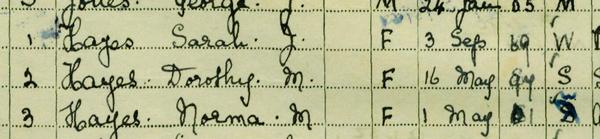 Jones George J. M 24 Jan 05 M
1 Hayes Sarah. J. F 3 Sep 60 W
2 Hayes. Dorothy. M. F 16 May 94 S
3 Hayes. Norma. M F 1 May S